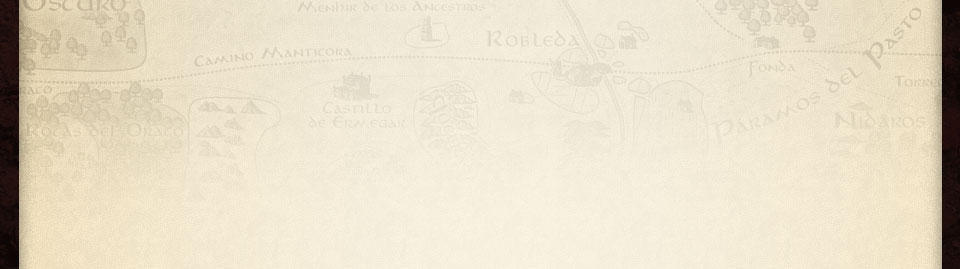 Oscuro
Menhir de los Ancestros
Robleda
Camino Manticora
Fonda
Páramos del Pasto
Torre
Castillo
de Ermegar
Rocas del Oraco
Nidaros